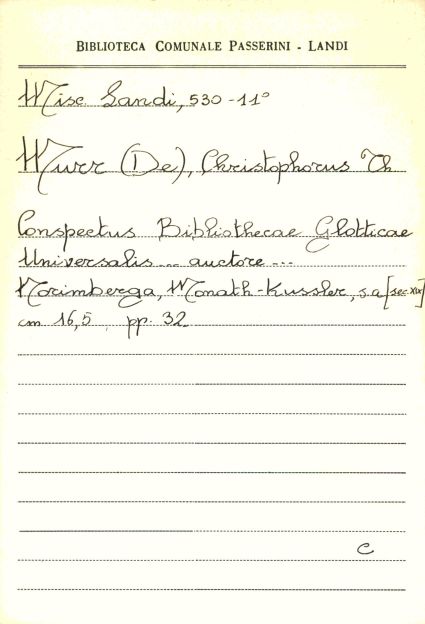 BIBLIOTECA COMUNALE PASSERINI - LANDI
Misc. Landi, 530 - 11°
Murr (De), Christophorus Th
Conspectus Bibliothecae Glotticae
Universalis ... auctore ...
Norimberga, Monath-Kussler, s.a [sec. XIX]
cm 16,5 pp. 32
C